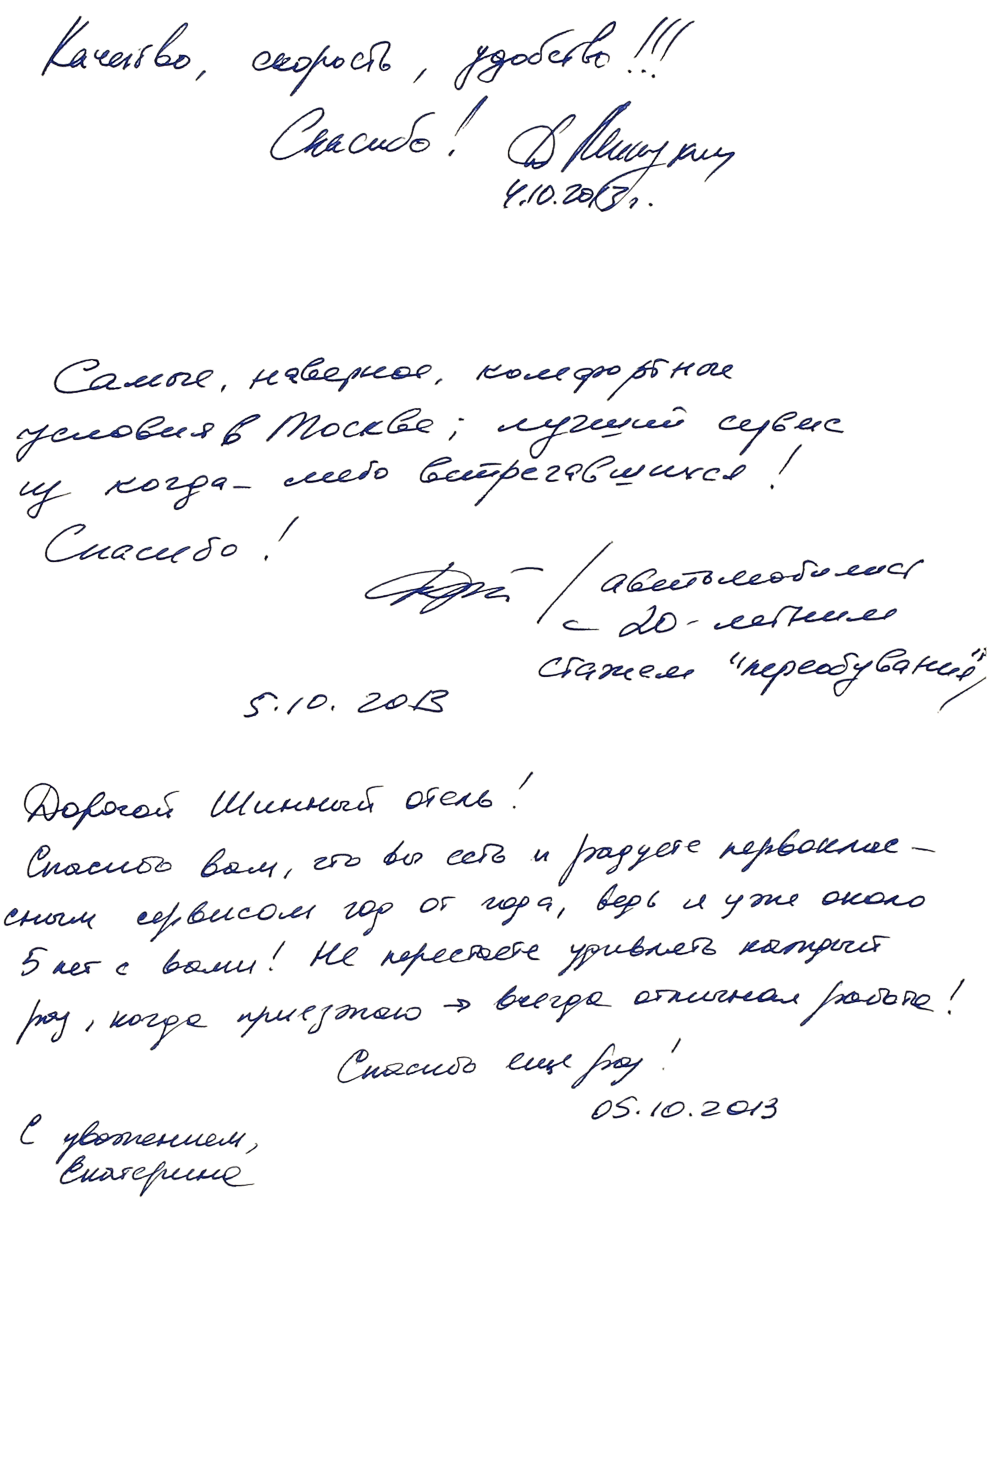 Качество, скорость, удобство!!!
Спасибо!
4.10.2013г.
Самые, наверное, комфортные
условия в Москве; лучший сервис
из когда-либо встречавшихся!
Спасибо!
/автомобилист
с 20-летним
стажем "переобувания"/
5.10.2013
Дорогой Шинный отель!
Спасибо вам, что вы есть и радуете первоклас-
сным сервисом год от года, ведь я уже около
5 лет с вами! Не перестаете удивлять каждый
раз, когда приезжаю → всегда отличная работа!
Спасибо еще раз!
05.10.2013
С уважением,
Екатерина